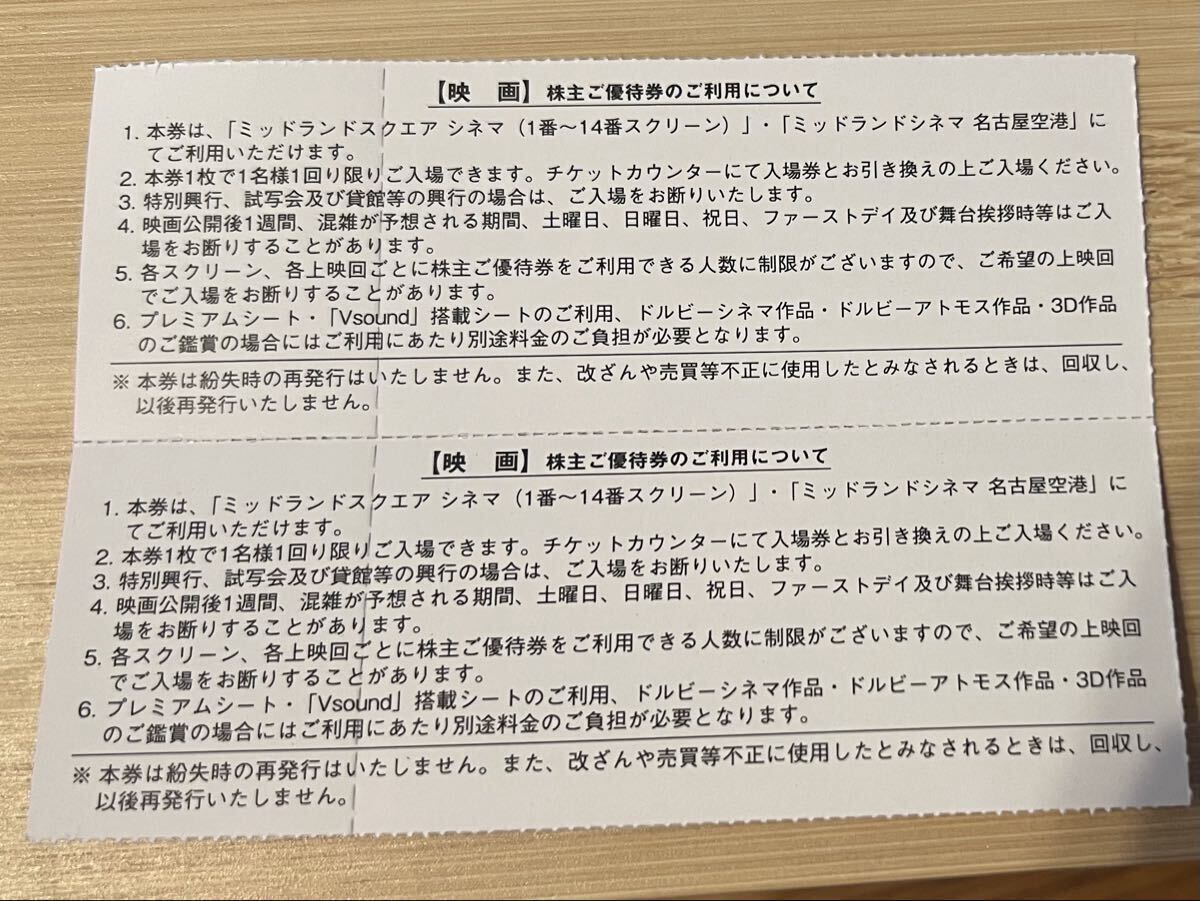 【映　画】 株主ご優待券のご利用について
1. 本券は、「ミッドランドスクエア シネマ（1番～14番スクリーン）」・「ミッドランドシネマ 名古屋空港」に
てご利用いただけます。
2. 本券1枚で1名様1回り限りご入場できます。チケットカウンターにて入場券とお引き換えの上ご入場ください。
3. 特別興行、試写会及び貸館等の興行の場合は、ご入場をお断りいたします。
4. 映画公開後1週間、混雑が予想される期間、土曜日、日曜日、祝日、ファーストデイ及び舞台挨拶時等はご入
場をお断りすることがあります。
5. 各スクリーン、各上映回ごとに株主ご優待券をご利用できる人数に制限がございますので、ご希望の上映回
でご入場をお断りすることがあります。
6. プレミアムシート・「Vsound」搭載シートのご利用、ドルビーシネマ作品・ドルビーアトモス作品・3D作品
のご鑑賞の場合にはご利用にあたり別途料金のご負担が必要となります。
※ 本券は紛失時の再発行はいたしません。また、改ざんや売買等不正に使用したとみなされるときは、回収し、
以後再発行いたしません。
【映　画】 株主ご優待券のご利用について
1. 本券は、「ミッドランドスクエア シネマ（1番～14番スクリーン）」・「ミッドランドシネマ 名古屋空港」に
てご利用いただけます。
2. 本券1枚で1名様1回り限りご入場できます。チケットカウンターにて入場券とお引き換えの上ご入場ください。
3. 特別興行、試写会及び貸館等の興行の場合は、ご入場をお断りいたします。
4. 映画公開後1週間、混雑が予想される期間、土曜日、日曜日、祝日、ファーストデイ及び舞台挨拶時等はご入
場をお断りすることがあります。
5. 各スクリーン、各上映回ごとに株主ご優待券をご利用できる人数に制限がございますので、ご希望の上映回
でご入場をお断りすることがあります。
6. プレミアムシート・「Vsound」搭載シートのご利用、ドルビーシネマ作品・ドルビーアトモス作品・3D作品
のご鑑賞の場合にはご利用にあたり別途料金のご負担が必要となります。
※ 本券は紛失時の再発行はいたしません。また、改ざんや売買等不正に使用したとみなされるときは、回収し、
以後再発行いたしません。